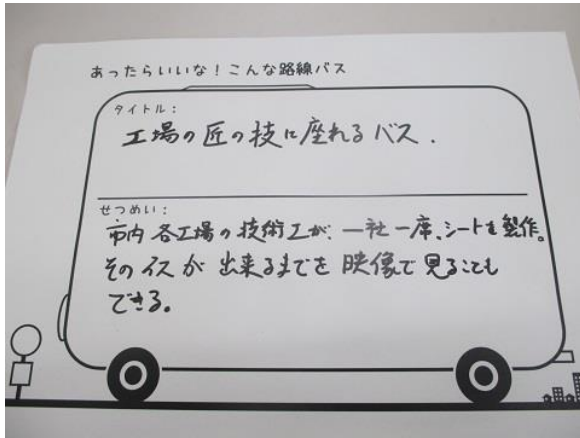 あったらいいな！こんな路線バス
タイトル：
工場の匠の技に座れるバス．
せつめい：
市内各工場の技術工が、一社一席、シートを製作。
そのイスが出来るまでを映像で見ることも
できる。